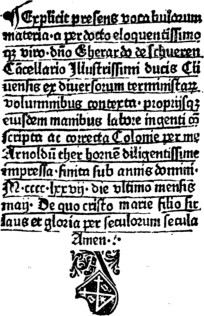 ¶Explicit presens vocabulorum
materia· a perdocto eloquentissimo
qȝ viro· dño Gherardo de schueren
Cācellario Illustrissimi ducis Cli
uensis ex diuersorum terministarꝝ
voluminibus contexta· proprijsqȝ
eiusdem manibus labore ingenti ꝯ
scripta ac correcta Colonie per me
Arnoldū ther hornē diligentissime
impressa· finita sub annis domini·
M·cccc·lxxvij· die vltimo mensis
maij· De quo cristo marie filio sit
laus et gloria per seculorum secula
Amen·:·